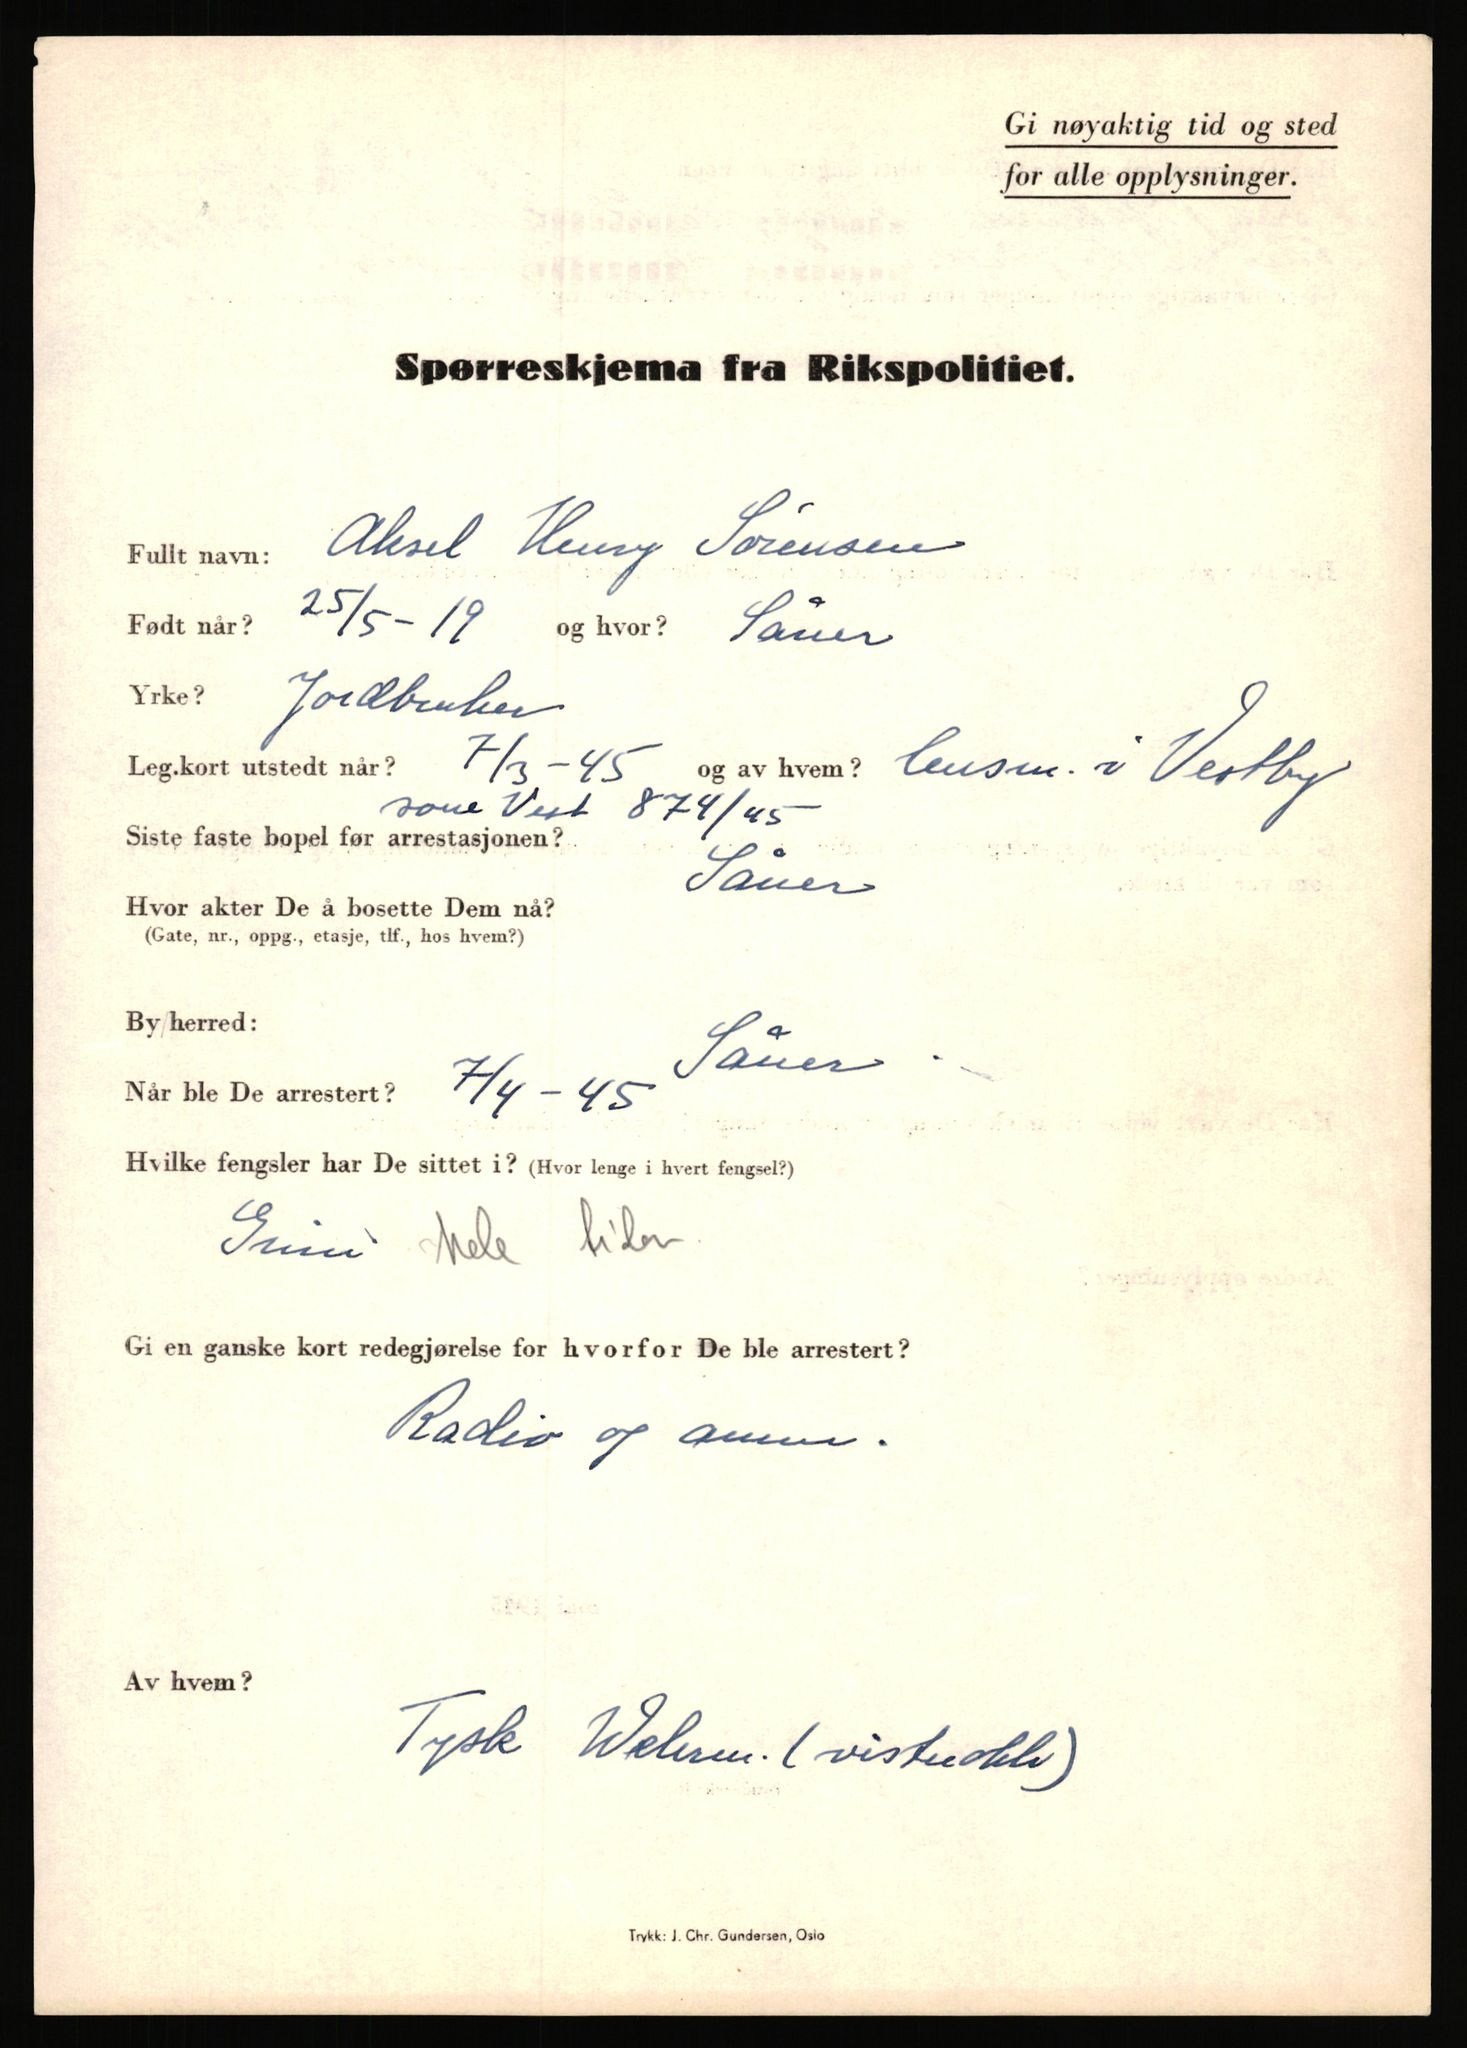 Gi nøyaktig tid og sted
for alle opplysninger.
Spørreskjema fra Rikspolitiet.
Fullt navn: Aksel Henry Sørensen
Født når? 25/5 - 19 og hvor? Såner
Yrke? Jordbruker
Leg.kort utstedt når? 7/3 - 45 og av hvem? lensm. i Vestby
sone Vest 874/45
Siste faste bopel før arrestasjonen?
Såner
Hvor akter De å bosette Dem nå?
(Gate, nr., oppg., etasje, tlf., hos hvem?)
By/herred:
Såner
Når ble De arrestert? 7/4 - 45
Hvilke fengsler har De sittet i? (Hvor lenge i hvert fengsel?)
Grini hele tiden
Gi en ganske kort redegjørelse for hvorfor De ble arrestert?
Radio og amm.
Av hvem?
Tysk Wehrm. (vistnokk)
Trykk: J. Chr. Gundersen, Oslo